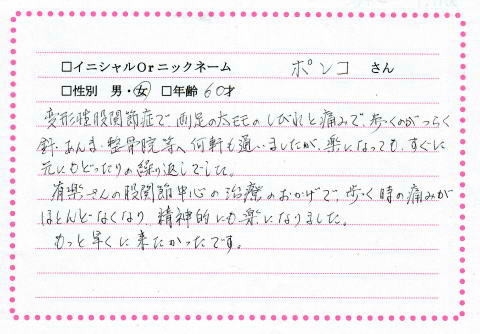 □イニシャルOrニックネーム ポンコ さん
□性別 男・女 □年齢 60才
変形性股関節症で両足の太モモのしびれと痛みで、歩くのがつらく
針、あんま、整骨院等へ何軒も通いましたが、楽になっても、すぐに
元にもどったりの繰り返しでした。
有楽さんの股関節中心の治療のおかげで、歩く時の痛みが
ほとんどなくなり、精神的にも楽になりました。
もっと早くに来たかったです。